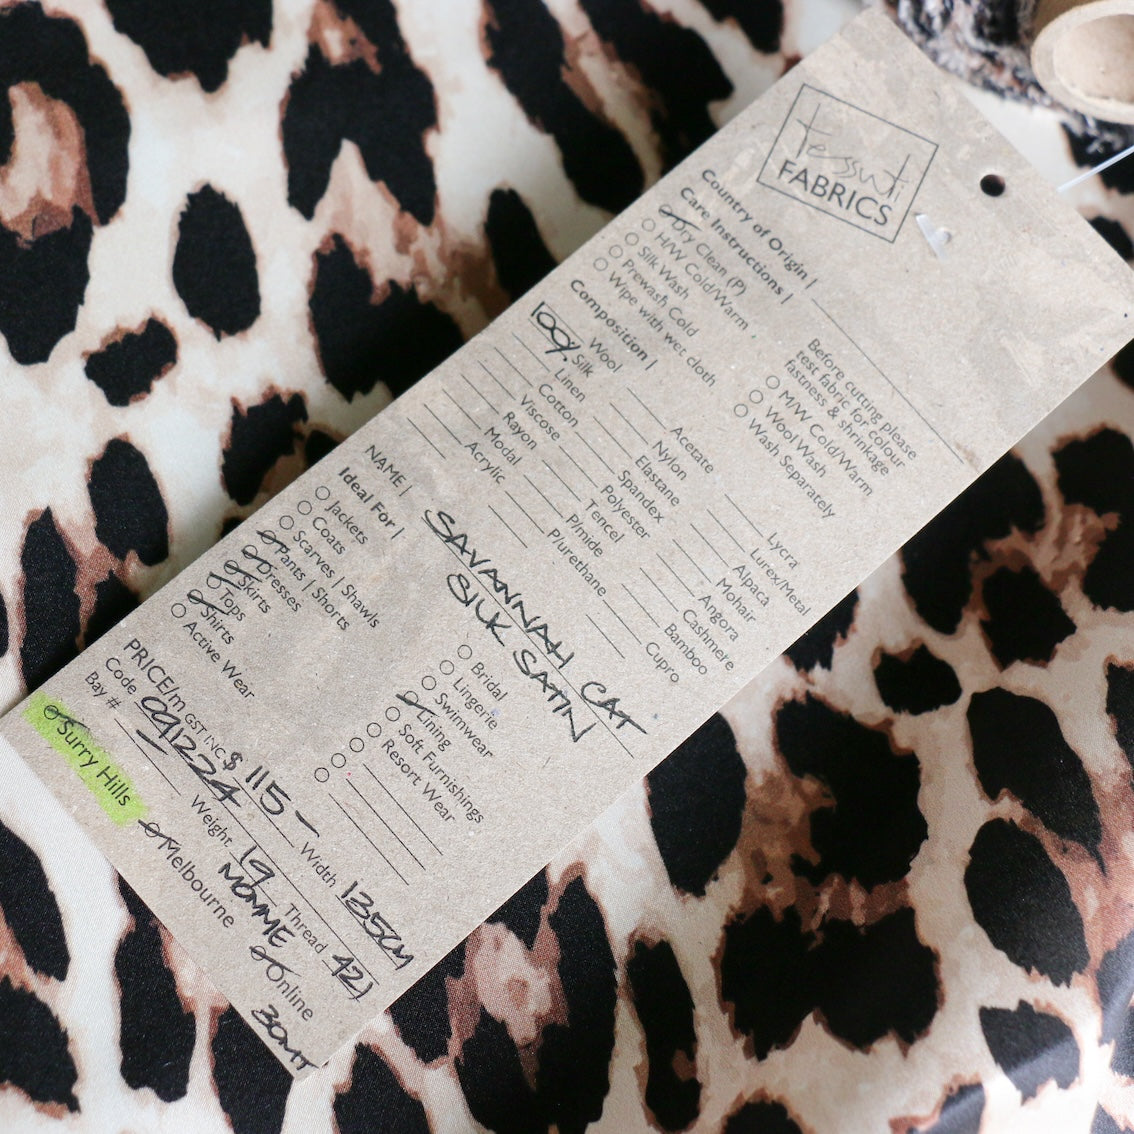 tessuti
FABRICS
Country of Origin |
Care Instructions |
Dry Clean (P)
H/W Cold/Warm
Silk Wash
Prewash Cold
Wipe with wet cloth
Before cutting please
test fabric for colour
fastness & shrinkage
M/W Cold/Warm
Wool Wash
Wash Separately
Composition |
Wool
100% Silk
Linen
Cotton
Viscose
Rayon
Modal
Acrylic
Acetate
Nylon
Elastane
Spandex
Polyester
Tencel
P/mide
P/urethane
Lycra
Lurex/Metal
Alpaca
Mohair
Angora
Cashmere
Bamboo
Cupro
NAME | SAVANNAH CAT
SILK SATIN
Ideal For |
Jackets
Coats
Scarves | Shawls
Pants | Shorts
Dresses
Skirts
Tops
Shirts
Active Wear
Bridal
Lingerie
Swimwear
Lining
Soft Furnishings
Resort Wear
PRICE/m GST INC $ 115 - Width 135CM
Code 091224 Weight 19 MOMME Thread 421
Bay #
Surry Hills Melbourne Online
30MT